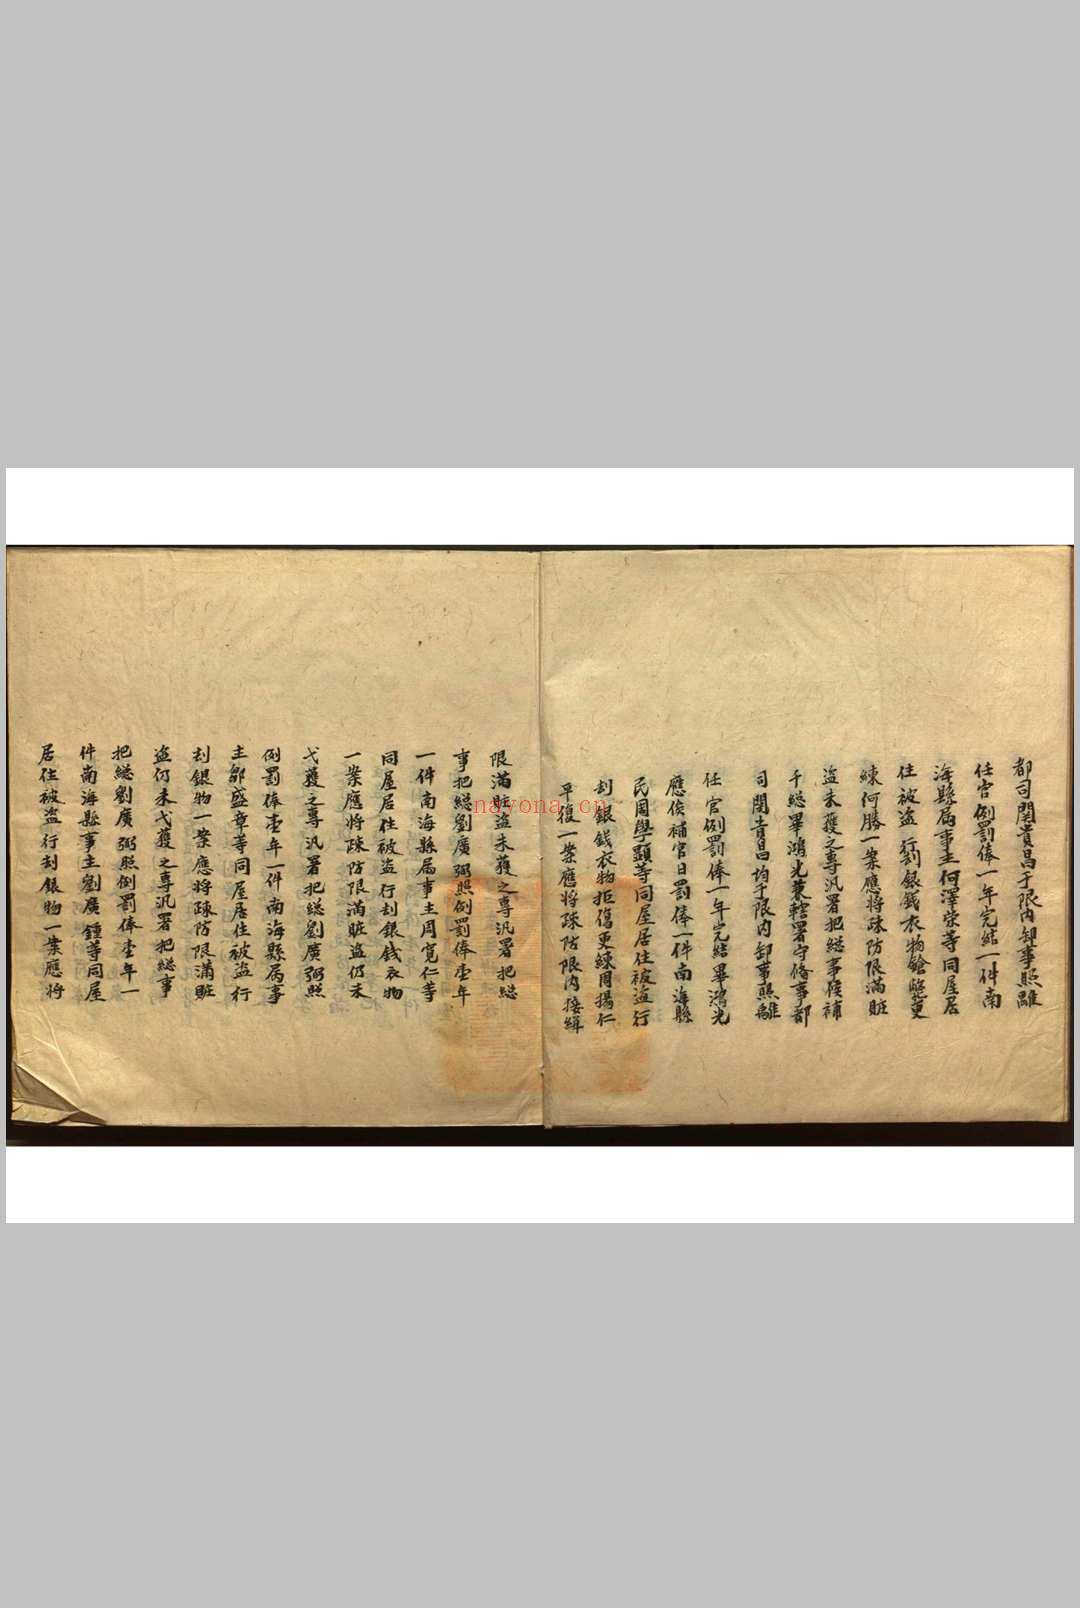 都司関貴昌于限内卸事照離
任官例罰俸一年完結一件南
海縣属事主何澤榮等同屋居
住被盗行刦銀錢衣物鎗斃更
練何勝一案應将疎防限滿賍
盗未獲之專汛署把総事候補
千総畢鴻光兼轄署守俻事都
司関貴昌均于限内卸事照離
任官例罰俸一年完結畢鴻光
應俟補官日罰俸一件南海縣
民周學顕等同屋居住被盗行
刦銀錢衣物拒傷更練周揚仁
平復一案應将疎防限内接緝
限滿賍盗未獲之專汛署把総
事把総劉廣弼照例罰俸壹年
一件南海縣属事主周寛仁等
同屋居住被盗行刦銀錢衣物
一案應将疎防限滿賍盗仍未
弋獲之專汛署把総劉廣弼照
例罰俸壹年一件南海縣属事
主鄒盛章等同屋居住被盗行
刦銀物一案應将疎防限滿賍
盗仍未弋獲之專汛署把総事
把総劉廣弼照例罰俸壹年一
件南海縣事主劉廣鍾等同屋
居住被盗行刦銀物一案應将
nayona.cn